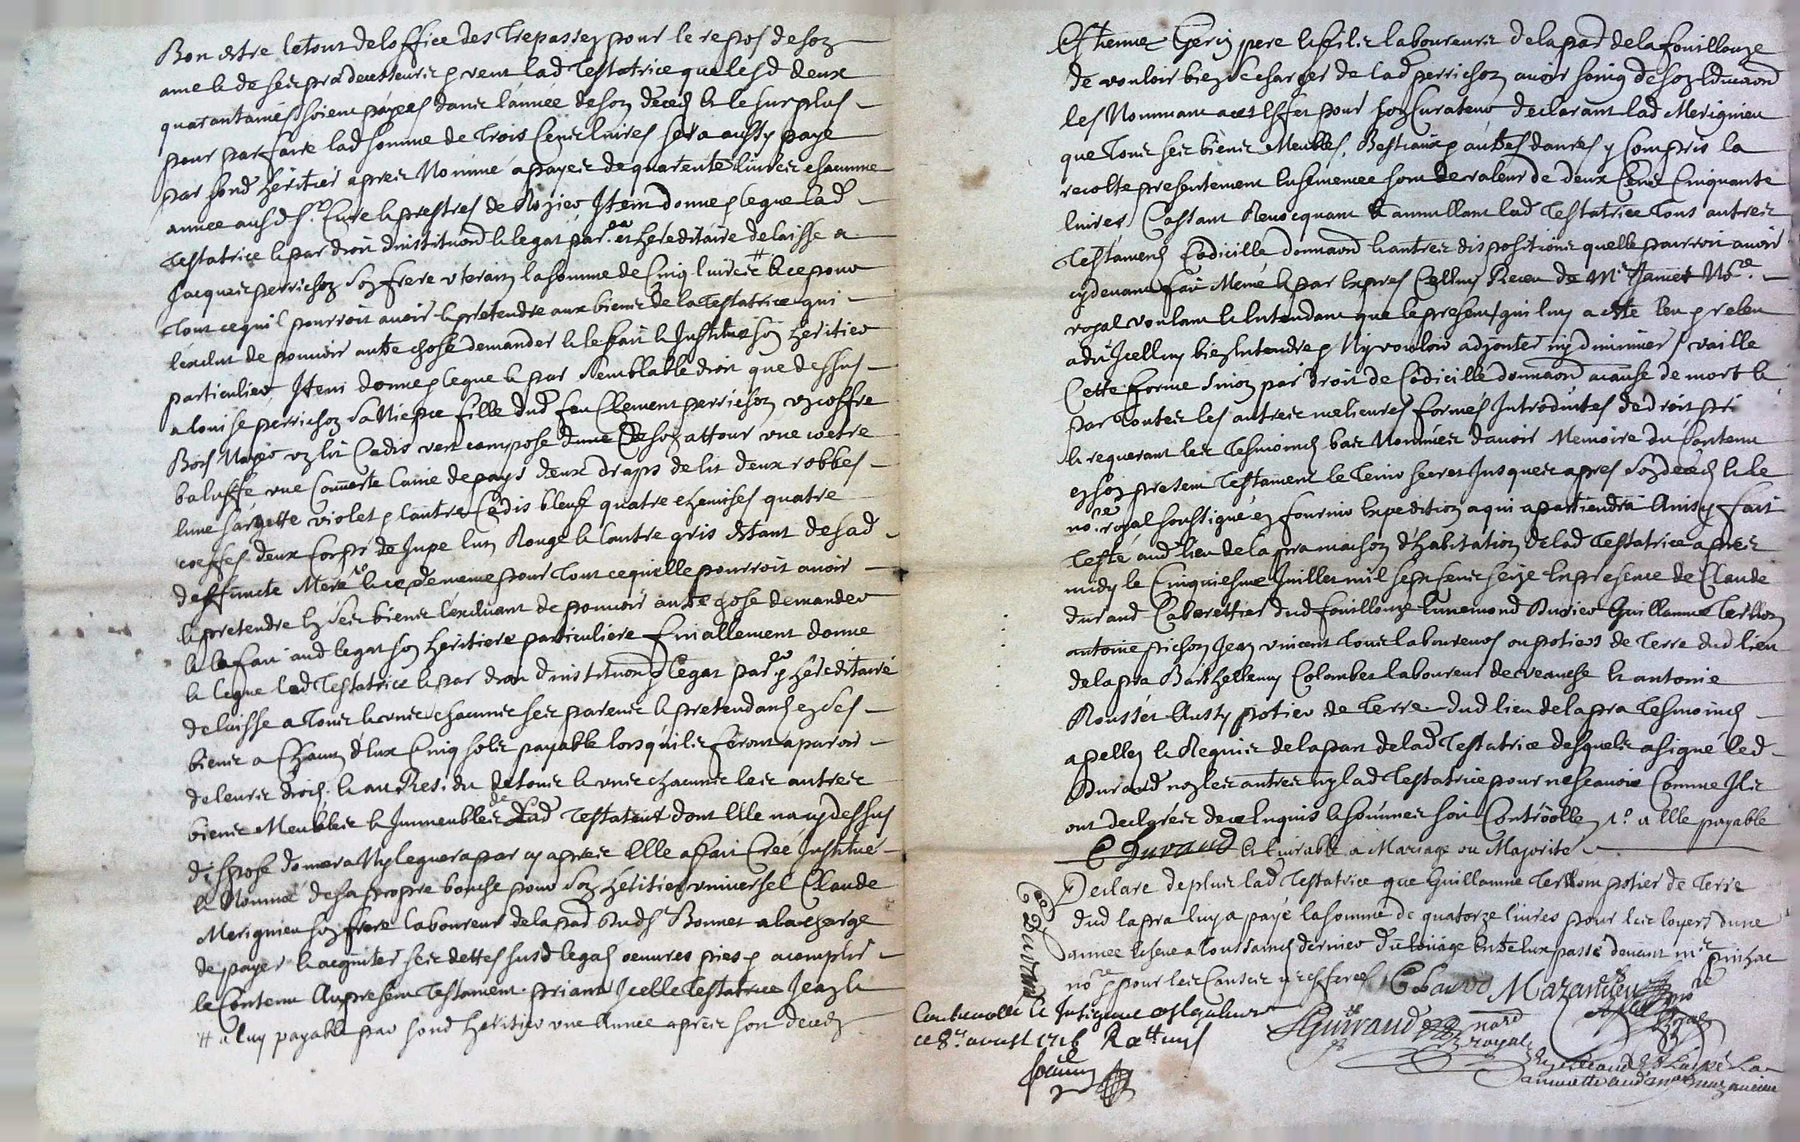 Bon estre le tout de loffice des trepassez pour le repos de son
ame & de ses predecesseurs veut lad Testatrice que lesd deux
quarantaines soient payees dans lannée de son deces & le surplus
pour parfaire lad somme de trois cens livres sera aussy payé
par sond heritier apres nommé a payer de quarente livres chacune
annee ausd Srs Curé & prestres de Item donne & legue lad
Testatrice & par droit dinstitution & legat par.er et hereditaire delaisse a
Jacques perrichon son frere uterain la somme de Cinq livres # & ce pour
tout ce quil pourroit avoir & pretendre aux biens de la Testatrice qui
lexclut de pouvoir autre chose demander & le fait & Institue son heritier
particulier Item donne & legue & par semblable droit que dessus
a louise perrichon sa Niepce fille dud feu Clement perrichon un coffre
Bois un lit Cadis vert compose dune de son attour une
baluffe une Couverte laine de pays deux draps de lit deux robbes
lune sargette violet & lautre Cadis bleuf quatre chemises quatre
coeffes deux Corps de Jupe lun Rouge & lautre gris estant de sad
deffuncte Mere & ce de meme pour tout ce quelle pourroit avoir
& pretendre en ses biens lexcluant de pouvoir autre chose demander
& la fait aud legat son heritiere particuliere finallement donne
& legue lad Testatrice & par droit dinstitution & legat par.er & hereditaire
delaisse a tous & uns chacuns ses parens & pretendans en ses
biens a Chacun deux Cinq sols payable lorsquils feront aparoir
de leurs droits & au Residu de tous & uns chacuns les autres
biens Meubles & Immeubles de lad Testatrice dont Elle na cy dessus
dispose donnera Ny leguera par cy apres Elle a fait Creé Institué
& Nommé de sa propre bouche pour son heritier universel Claude
Merignieu son frere laboureur de la pad Bonnet a la charge
de payer & acquiter ses dettes susd legats oeuvres pies & acomplir
le Contenu Au present Testament priant Icelle Testatrice Jean &
# a luy payable par sond heritier une Année apres son deces
Estienne Gerin pere & fils laboureurs de la pad de la fouillouze
de vouloir bien se charger de lad perrichon avoir soing de son Education
les Nommant a cet Effet pour son Curateur declarant lad Merignieu
que tous ses biens Meubles, Bestiaux & autres danrées y Compris la
recolte presentement Ensemencee sont de valeur de deux Cens Cinquante
livres Cassant Revocquant & annullant lad Testatrice tous autres
Testamens Codicille donnaon & autres dispositions quelle pourroit avoir
cy devant fait Meme & par Expres Celluy Receu de Me Jamet No.re
royal voulant & Entendant que le present qui luy a este leu & releu
a dit Icelluy bien Entendre & Ny vouloir adjouter ny diminuer vaille
Cette forme sinon par droit de Codicille donnaon a cause de mort &
par toutes les autres melieures formes Introduites de droit
& requerant les Tesmoins bas Nommes davoir Memoire du Contenu
en son present Testament le Tenir secret Jusques apres son deces & le
no.re royal soussigné en fournir Expedition a qui apartiendra Ainsy fait
Testé aud lieu de la pra maison dhabitation de lad Testatrice apres
midy le Cinquiesme Juillet mil sept cens seize En presence de Claude
durand Cabarettier dud fouillouze Ennemond Guillaume Terllon
antoine pichon Jean vincent tous laboureurs ou potiers de Terre dud lieu
de la pra Barthellemy Colombet laboureur de veauche & antoine
Rousset Aussy potier de Terre dud lieu de la pra Tesmoins
apellez & Requis de la part de lad Testatrice desquels a signé led
Durand non les autres ny lad Testatrice pour ne scavoir Comme Ils
ont declarés de ce Enquis & sommes soit Controollé 1.° a Elle payable
C Durand & livrable a Mariage ou Majorité
Declare de plus lad Testatrice que Guillaume Terllon potier de Terre
dud la pra luy a payé la somme de quatorze livres pour les loyers dune
annee Echeue a toussaincts dernier du louage Entre Eux passé devant me
no.re pour les Causes C Durand Mazandieu
C Durand
Controollé & Insigné a
ce 8.e aoust 1716
Guiraud
royal